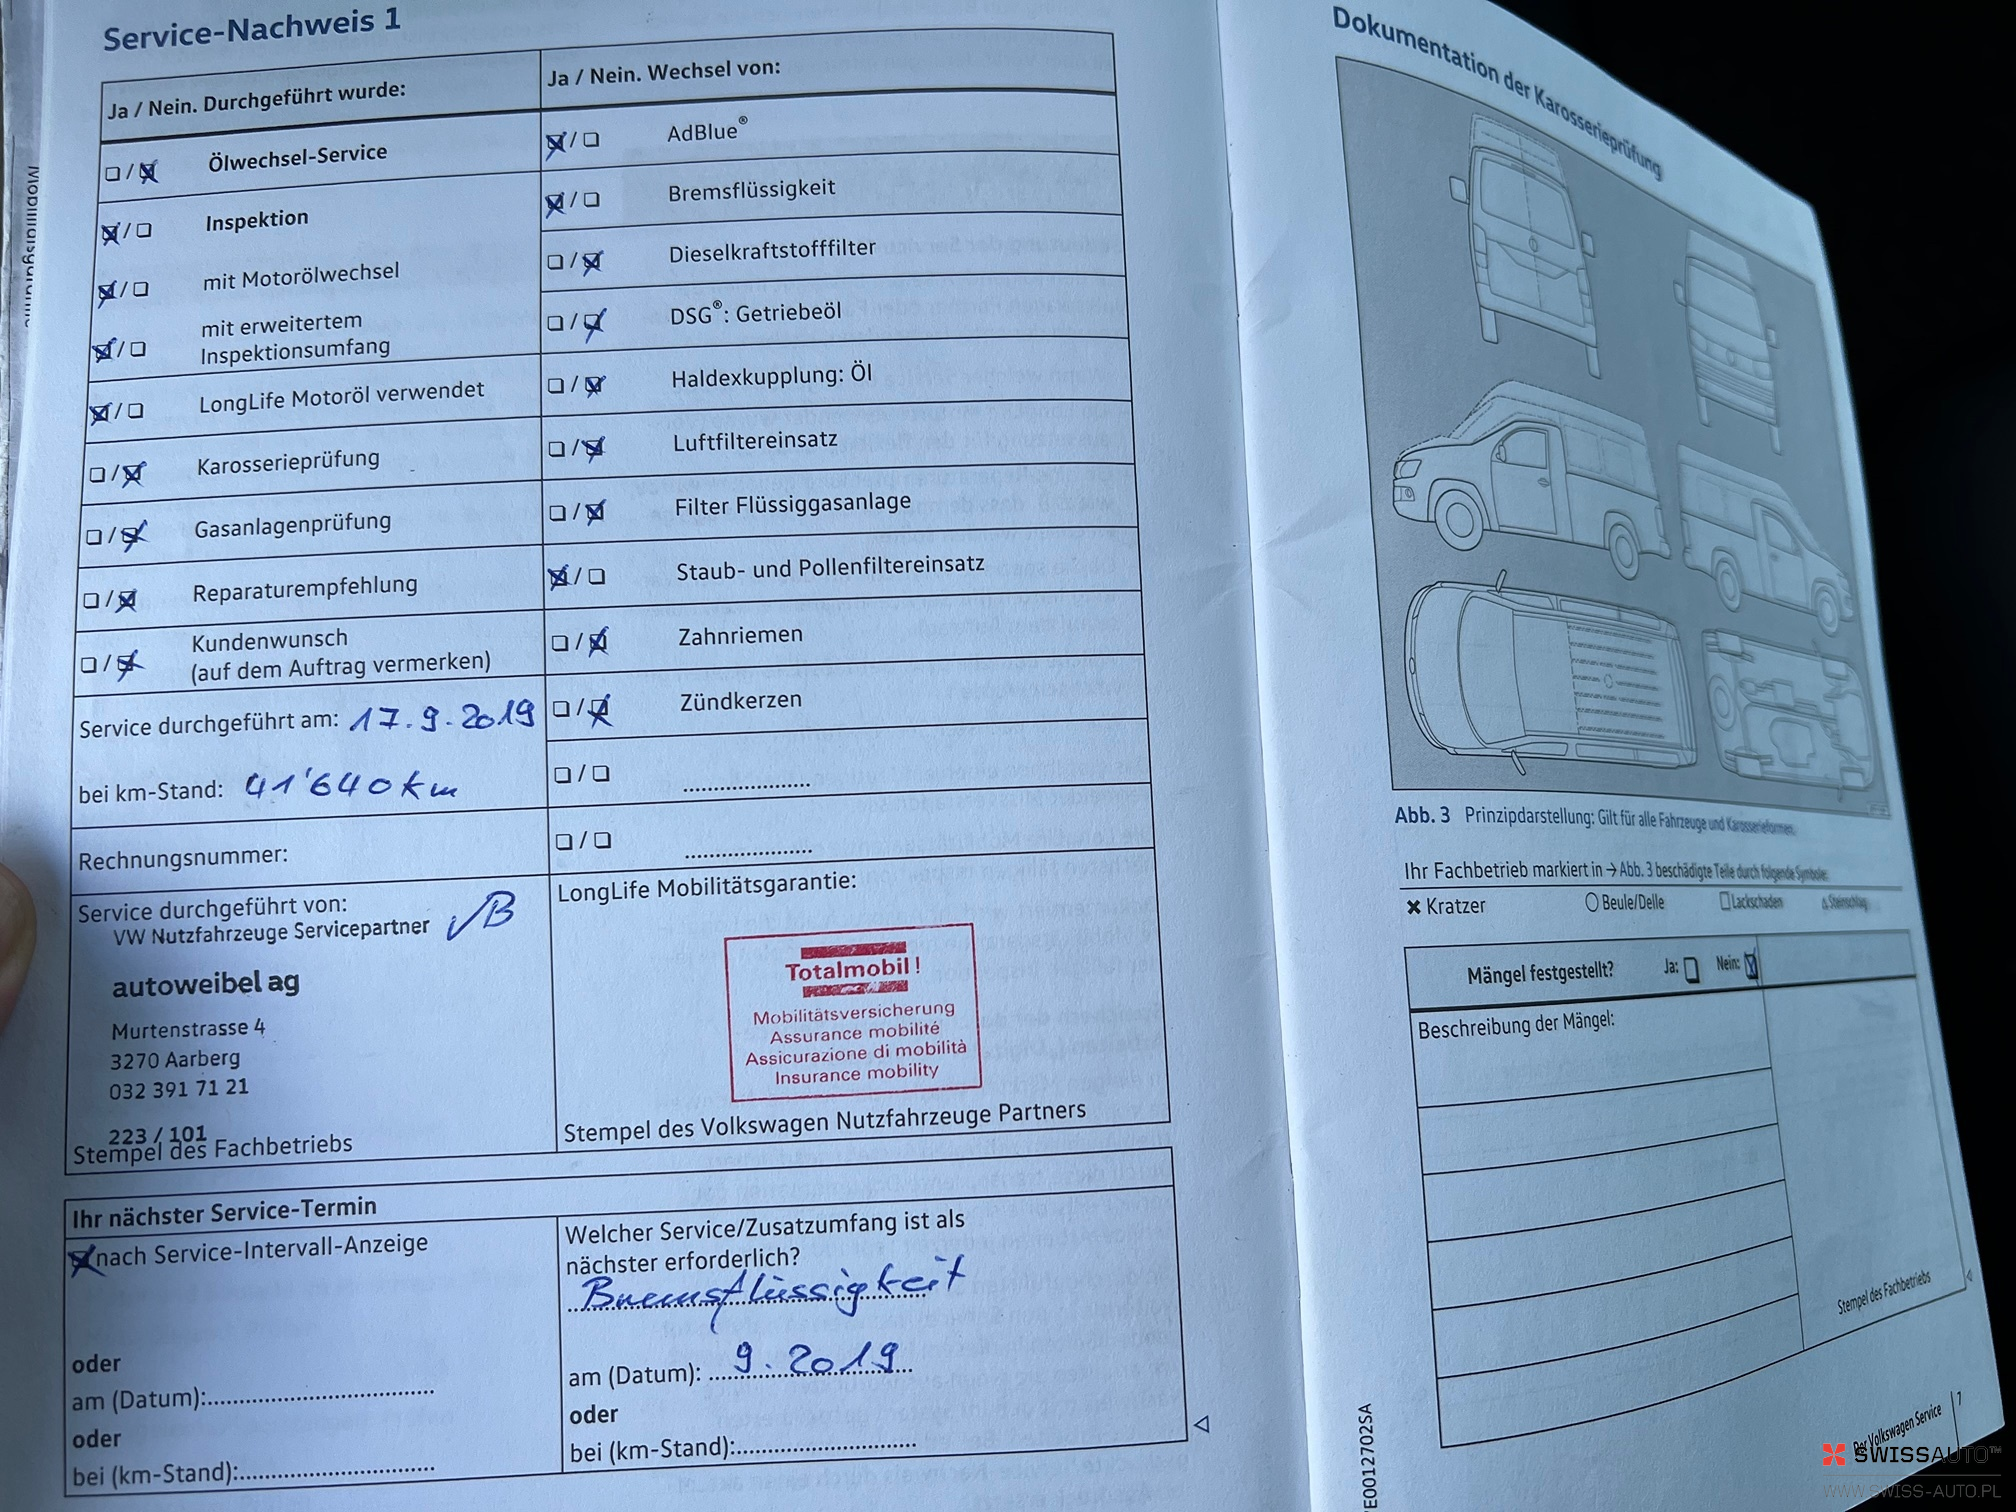 Service-Nachweis 1
Ja / Nein. Durchgeführt wurde:
Ölwechsel-Service
Inspektion
mit Motorölwechsel
mit erweitertem
Inspektionsumfang
LongLife Motoröl verwendet
Karosserieprüfung
Gasanlagenprüfung
Reparaturempfehlung
Kundenwunsch
(auf dem Auftrag vermerken)
Service durchgeführt am: 17.9.2019
bei km-Stand: 41'640 km
Rechnungsnummer:
Service durchgeführt von:
VW Nutzfahrzeuge Servicepartner
autoweibel ag
Murtenstrasse 4
3270 Aarberg
032 391 71 21
223 / 101
Stempel des Fachbetriebs
Ja / Nein. Wechsel von:
AdBlue®
Bremsflüssigkeit
Dieselkraftstofffilter
DSG®: Getriebeöl
Haldexkupplung: Öl
Luftfiltereinsatz
Filter Flüssiggasanlage
Staub- und Pollenfiltereinsatz
Zahnriemen
Zündkerzen
LongLife Mobilitätsgarantie:
Totalmobil!
Mobilitätsversicherung
Assurance mobilité
Assicurazione di mobilità
Insurance mobility
Stempel des Volkswagen Nutzfahrzeuge Partners
Ihr nächster Service-Termin
nach Service-Intervall-Anzeige
oder
am (Datum):
oder
bei (km-Stand):
Welcher Service/Zusatzumfang ist als
nächster erforderlich?
Bremsflüssigkeit
am (Datum): 9.2019
oder
bei (km-Stand):
Dokumentation der Karosserieprüfung
Abb. 3 Prinzipdarstellung: Gilt für alle Fahrzeuge und Karosserieformen.
Ihr Fachbetrieb markiert in → Abb. 3 beschädigte Teile durch folgende Symbole:
Kratzer
Beule/Delle
Lackschaden
Steinschlag
Mängel festgestellt? Ja: Nein:
Beschreibung der Mängel:
Stempel des Fachbetriebs
Der Volkswagen Service
SWISSAUTO™
WWW.SWISS-AUTO.PL